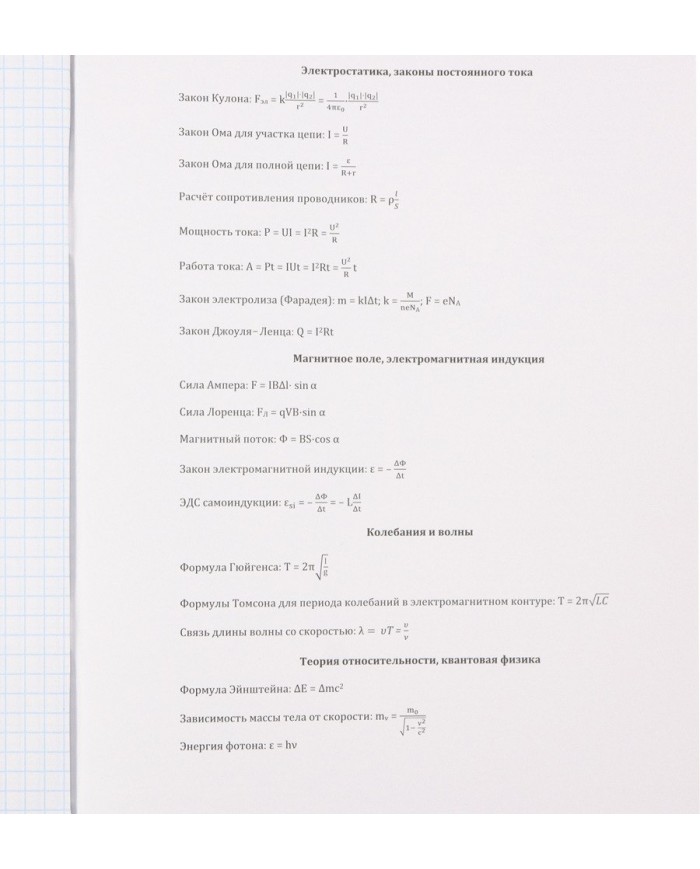 Электростатика, законы постоянного тока
Закон Кулона: Fэл = k|q₁|·|q₂|/r² = 1/4πε₀·|q₁|·|q₂|/r²
Закон Ома для участка цепи: I = U/R
Закон Ома для полной цепи: I = ε/R+r
Расчёт сопротивления проводников: R = ρl/S
Мощность тока: P = UI = I²R = U²/R
Работа тока: A = Pt = IUt = I²Rt = U²/R t
Закон электролиза (Фарадея): m = kIΔt; k = M/neNA; F = eNA
Закон Джоуля–Ленца: Q = I²Rt
Магнитное поле, электромагнитная индукция
Сила Ампера: F = IBΔl· sin α
Сила Лоренца: FЛ = qVB·sin α
Магнитный поток: Φ = BS·cos α
Закон электромагнитной индукции: ε = – ΔΦ/Δt
ЭДС самоиндукции: εsi = – ΔΦ/Δt = – LΔI/Δt
Колебания и волны
Формула Гюйгенса: T = 2π√l/g
Формулы Томсона для периода колебаний в электромагнитном контуре: T = 2π√LC
Связь длины волны со скоростью: λ = υT = υ/ν
Теория относительности, квантовая физика
Формула Эйнштейна: ΔE = Δmc²
Зависимость массы тела от скорости: mv = m₀/√1−v²/c²
Энергия фотона: ε = hν